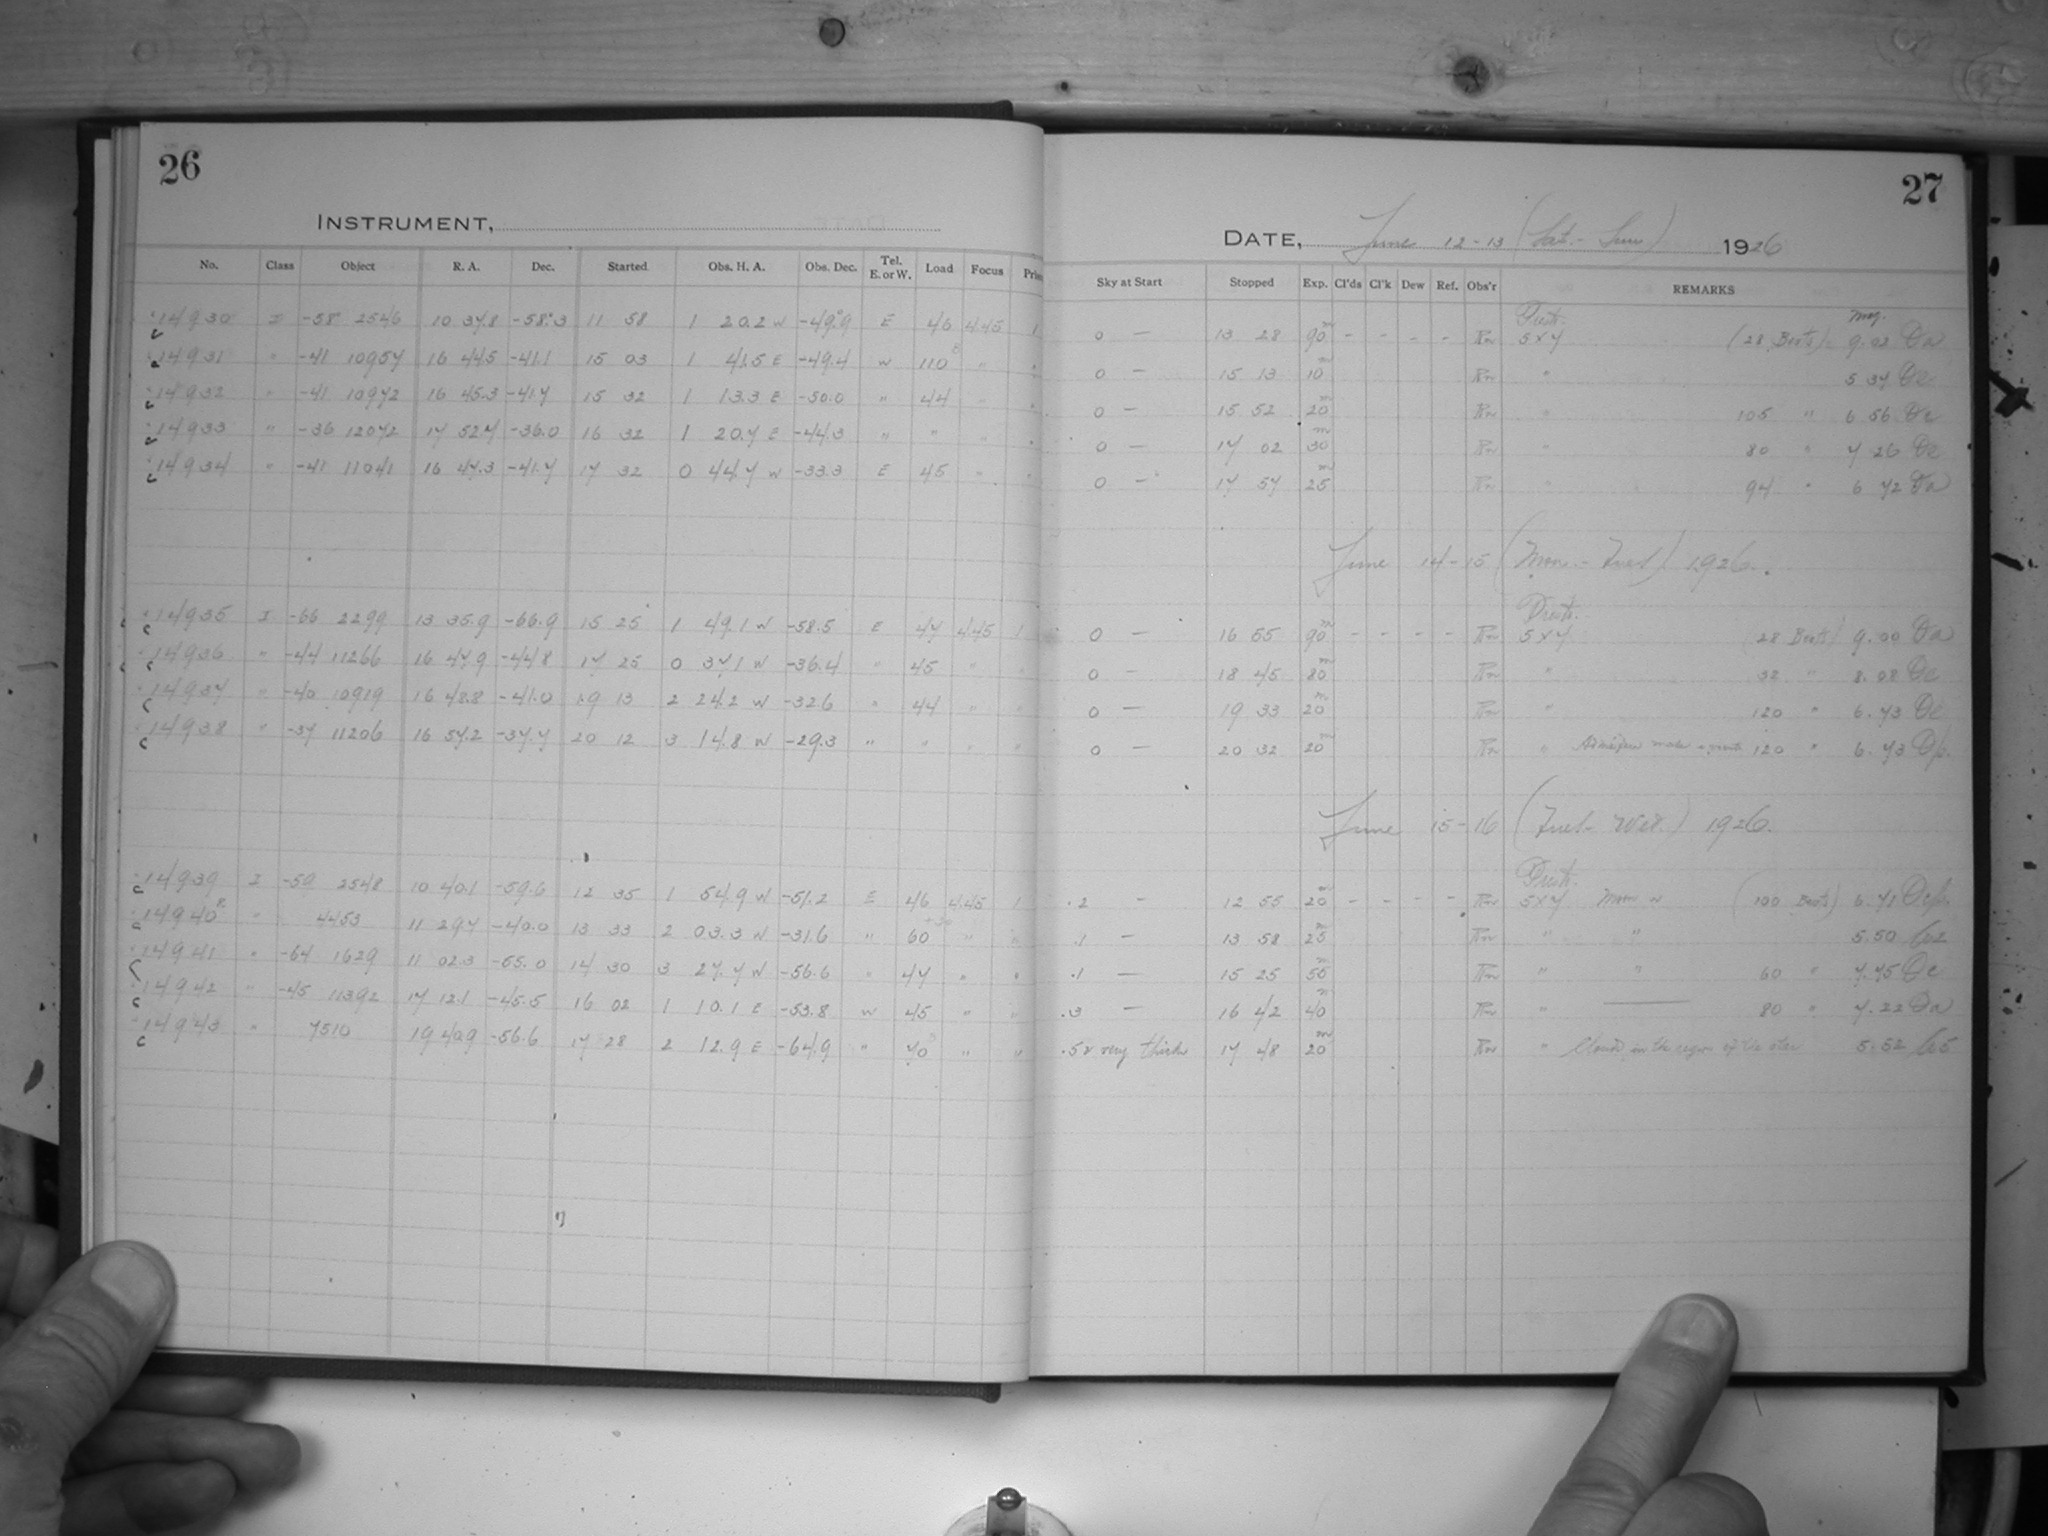 26
INSTRUMENT,
No. Class Object R. A. Dec. Started Obs. H. A. Obs. Dec. Tel. E. or W. Load Focus
14930 I -58 2546 10 37.8 -58.3 11 58 1 20.2 W -49.9 E 46 4.45 1
14931 " -41 10957 16 44.5 -41.1 15 03 1 41.5 E -49.4 W 110 "
14932 " -41 10972 16 45.3 -41.7 15 32 1 13.3 E -50.0 " 44
14933 " -36 12072 17 52.7 -36.0 16 32 1 20.7 E -44.3 " "
14934 " -41 11041 16 47.3 -41.7 17 32 0 44.7 W -33.3 E 45 "
14935 I -66 2299 13 35.9 -66.9 15 25 1 49.1 W -58.5 E 47 4.45 1
14936 " -44 11266 16 47.9 -44.8 17 25 0 37.1 W -36.4 " 45 "
14937 " -40 10919 16 48.8 -41.0 19 13 2 24.2 W -32.6 " 44 "
14938 " -37 11206 16 57.2 -37.7 20 12 3 14.8 W -29.3 " " "
14939 I -59 2548 10 40.1 -59.6 12 35 1 54.9 W -51.2 E 46 4.45 1
14940 " 4453 11 29.7 -40.0 13 33 2 03.3 W -31.6 " 60 "
14941 " -64 1629 11 02.3 -65.0 14 30 3 27.7 W -56.6 " 47 "
14942 " -45 11392 17 12.1 -45.5 16 02 1 10.1 E -53.8 W 45 "
14943 " 7510 19 40.9 -56.6 17 28 2 12.9 E -64.9 " 70 "
27
DATE, June 12-13 (Sat.- Sun) 1926
Sky at Start Stopped Exp. Cl'ds Cl'k Dew Ref. Obs'r REMARKS
mag.
0 — 13 28 90m - - - - 5x7 (28 Beats) 9.02
0 — 15 13 10m " 5 37
0 — 15 52 20m " 105 " 6 56
0 — 17 02 30m " 80 " 7 26
0 — 17 57 25m " 94 " 6 72
June 14-15 (Mon.- Tues) 1926.
0 — 16 55 90m - - - - 5x7 (28 Beats) 9.00
0 — 18 45 80m " 32 " 8.08
0 — 19 33 20m " 120 " 6.73
0 — 20 32 20m " 120 " 6.73
June 15-16 (Tues- Wed.) 1926.
.2 — 12 55 20m - - - - 5x7 Moon (100 Beats) 6.71
.1 — 13 58 25m " " 5.50
.1 — 15 25 55m " " 60 " 7.75
.3 — 16 42 40m " — 80 " 7.22
.5 & very thick 17 48 20m " Clouds in the region of the star 5.52